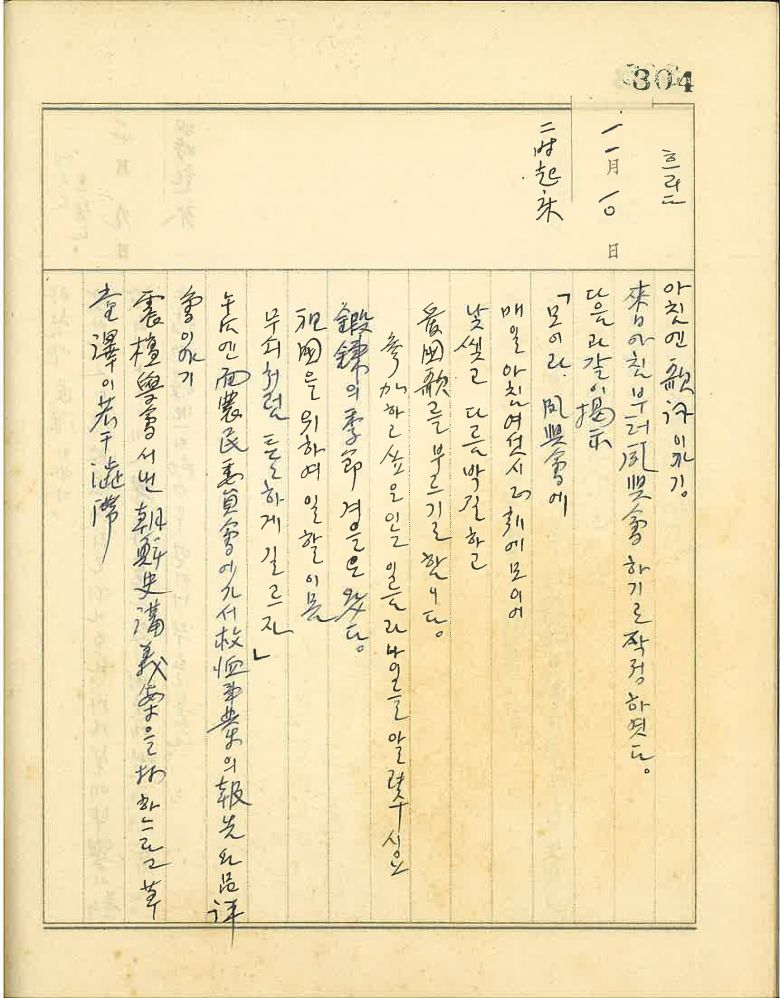 304
흐리다
一一月 一〇日
二時起床
아침엔 歌 이야기
來日 아침부터 夙興會 하기로 작정하엿다。
다음과 같이 揭示
「모이라、夙興會에
매일 아침 여섯시 正刻에 모이여
낯 씻고 다름박질하고
愛國歌를 부르기를 합니다。
參加하고 싶은 일은 이름과 나이를 알려주시요
鍛鍊의 季節 겨을은 왓다。
祖國을 위하여 일할 이 몸
무쇠처럼 튼튼하게 길르자」
午后엔 面農民委員會에 가서 救恤事業의 報告와 品評
會 이야기
震檀學會서 낸 朝鮮史講義案을 하느라고 草
堂譯이 若干 澁滯